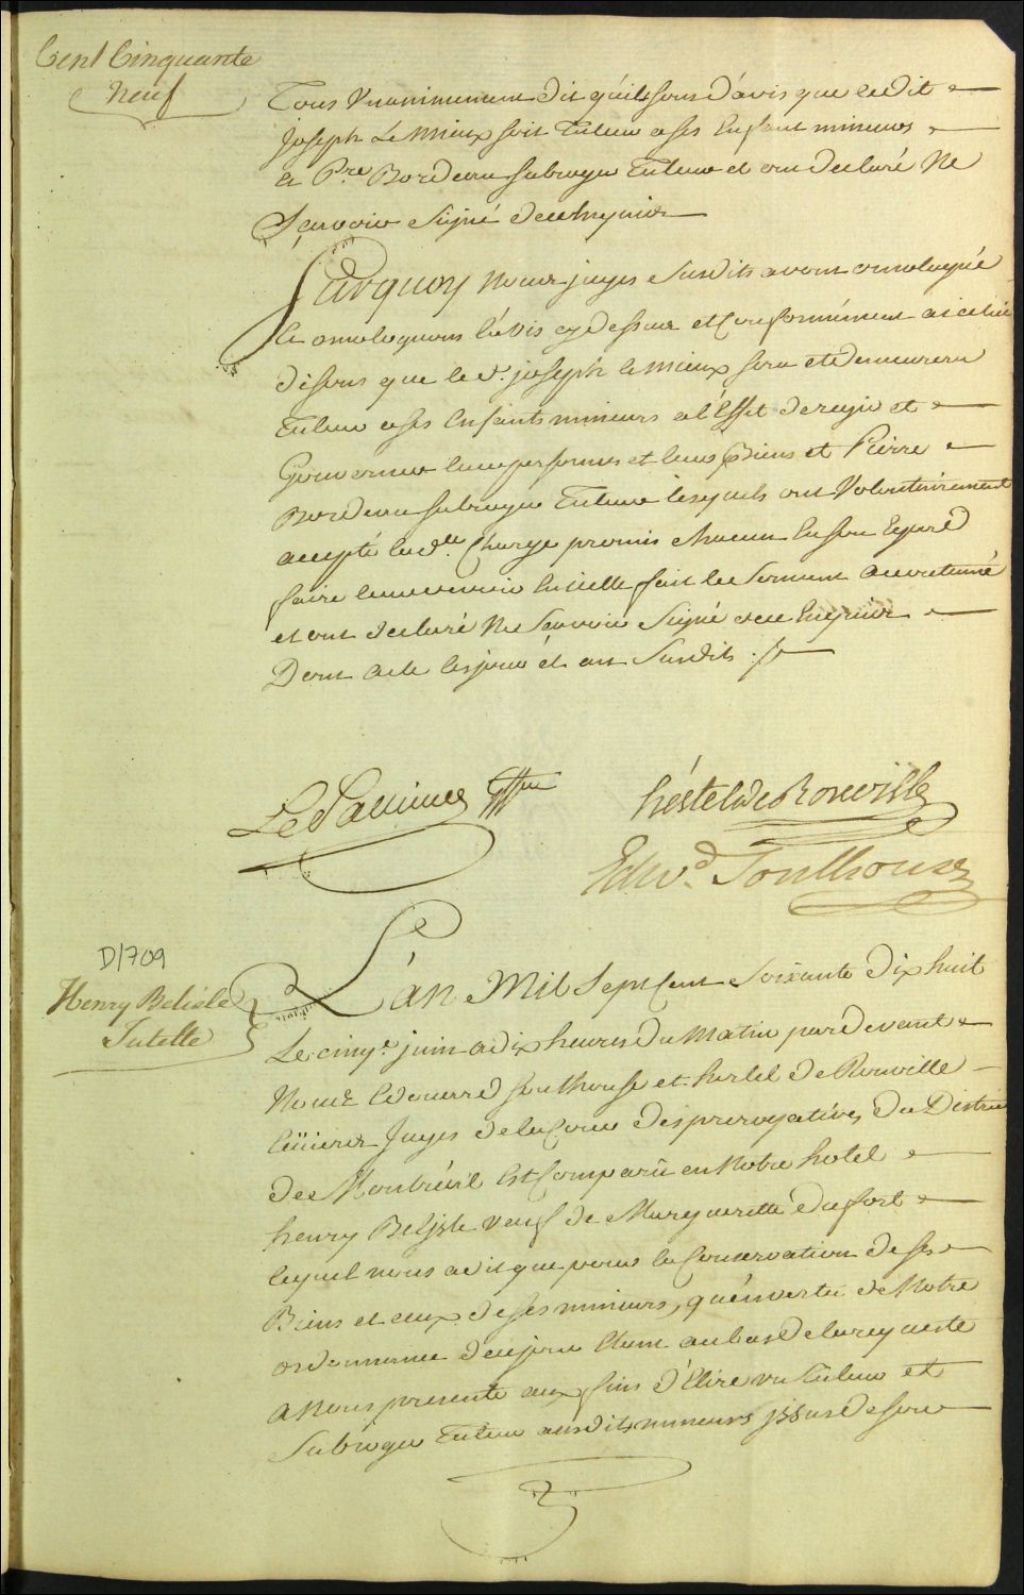 Cent Cinquante
Neuf
Tous Unanimement dit quils sons d'avis que ledit
Joseph Le Mieux soit Tuteur a ses Enfant mineurs
et Pre. Bordeau subrogé Tuteur et ont declaré Ne
Sçavoir Signé de ce Enquis
Surquoy Nous juges Susdits avons omologué
et omologuons l'avis cy dessus et Conformément a icelui
disons que le d. joseph le mieux sera et demeurera
Tuteur a ses Enfants mineurs a l'Effet de regir et
Gouverner leurs personnes et leurs Biens et Pierre
Bordeau subrogé Tuteur lesquels ont Volontairement
accepté lad.te Charge promis chacun En son Egard
faire leur devoir En icelle fait le Serment accoutumé
et ont declaré Ne Sçavoir Signé de ce Enquis
Dont Acte les jour et an Susdits ./.
Le Pallieur Gffier
hertel de Rouville
Edwd. Southouse
D1709
Henry Belisle
Tutelle
L'an Mil Sept Cent Soixante Dix huit
Le cinq.e juin a dix heures Du Matin par devant
Nous Edouard Southouse et hertel De Rouville
Ecuiers Juges de la Cour des prerogatives Du District
de Montréal Est Comparü en Notre hotel
henry Belisle veuf de Marguerite dufort
lequel nous a dit que pour la Conservation de ses
Biens et ceux de ses mineurs, qu'en vertu de Notre
ordonnance de ce jour Etant au bas de la requeste
A Nous presenté aux fins d'Elire un Tuteur et
Subrogé Tuteur ausdits mineurs jssus de son